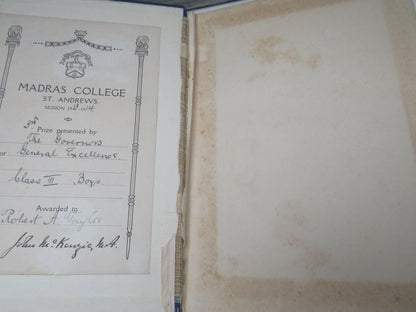 MADRAS COLLEGE
ST. ANDREWS.
SESSION
3rd. Prize presented by
The Governors
or General Excellence.
Class III Boys.
Awarded to
Robert A. Taylor
John McKenzie, M.A.